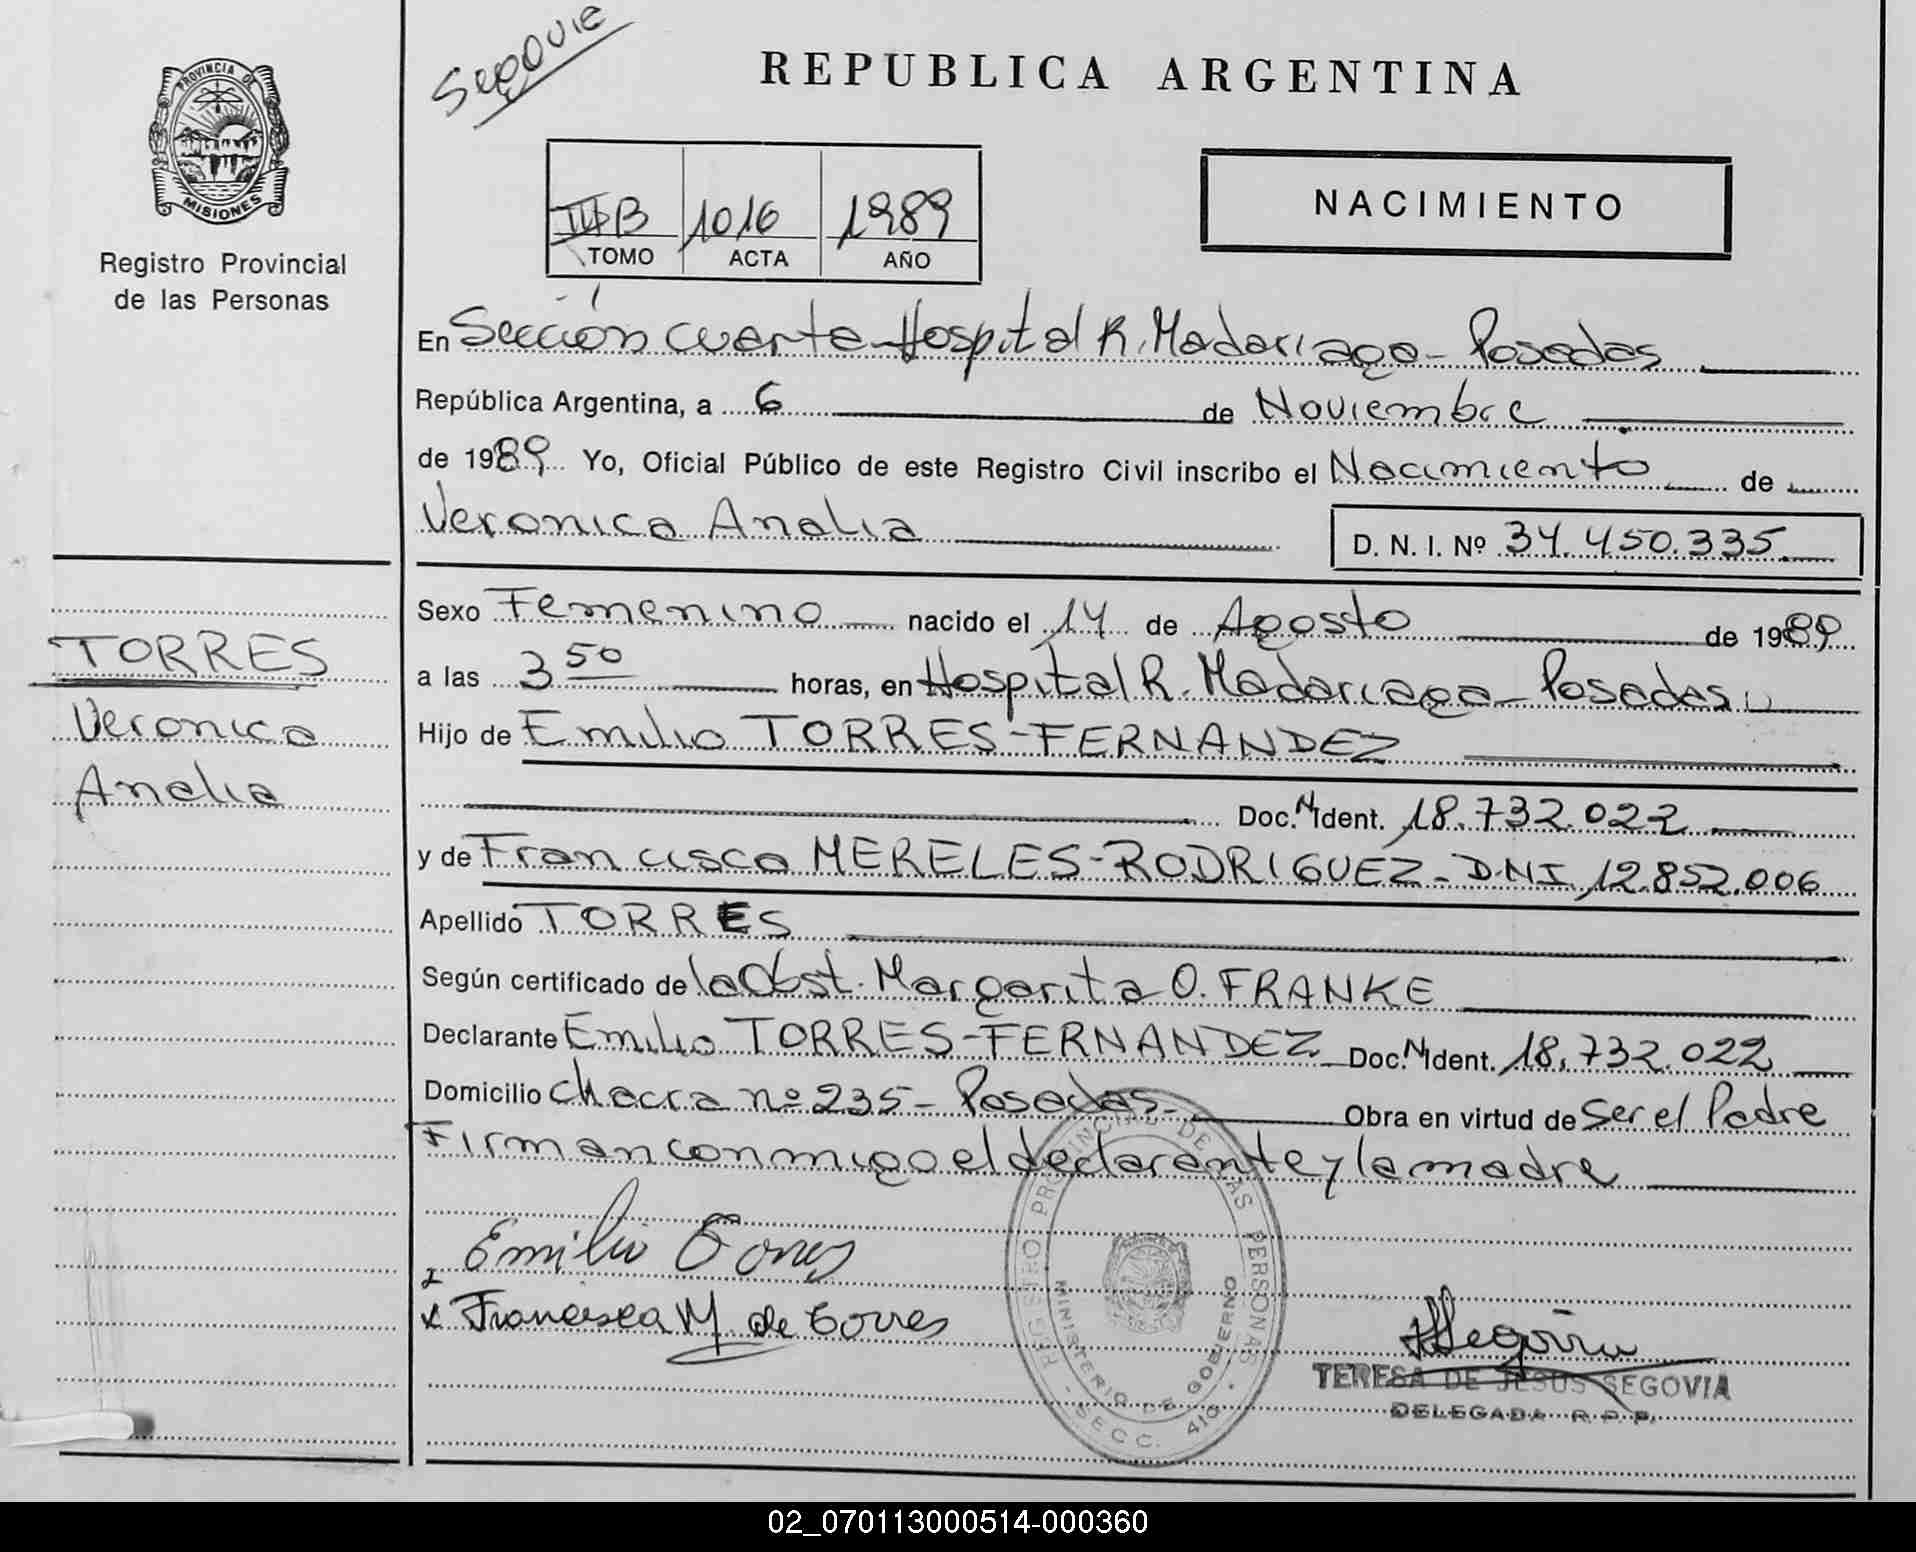 Segovia
REPUBLICA ARGENTINA
PROVINCIA DE
MISIONES
Registro Provincial
de las Personas
B 1016 1989
TOMO ACTA AÑO
NACIMIENTO
En Sección Cuarta Hospital R. Madariaga - Posadas
República Argentina, a 6 de Noviembre
de 1989 Yo, Oficial Público de este Registro Civil inscribo el Nacimiento de
Veronica Analia D. N. I. Nº 34.450.335
Sexo Femenino nacido el 14 de Agosto de 1989
a las 3 50 horas, en Hospital R. Madariaga - Posadas
Hijo de Emilio TORRES-FERNANDEZ
Doc. N Ident. 18.732.022
y de Francisca MERELES-RODRIGUEZ - DNI 12.852.006
Apellido TORRES
Según certificado de la Obst. Margarita O. FRANKE
Declarante Emilio TORRES-FERNANDEZ Doc. N Ident. 18.732.022
Domicilio Chacra nº 235 - Posadas Obra en virtud de Ser el Padre
Firman conmigo el declarante y la madre
Emilio Torres
x Francisca M de Torres
Segovia
TERESA DE JESUS SEGOVIA
DELEGADA R. P. P.
REGISTRO PROVINCIAL DE LAS PERSONAS
MINISTERIO DE GOBIERNO
- SECC. 4ta -
TORRES
Veronica
Analia
02_070113000514-000360